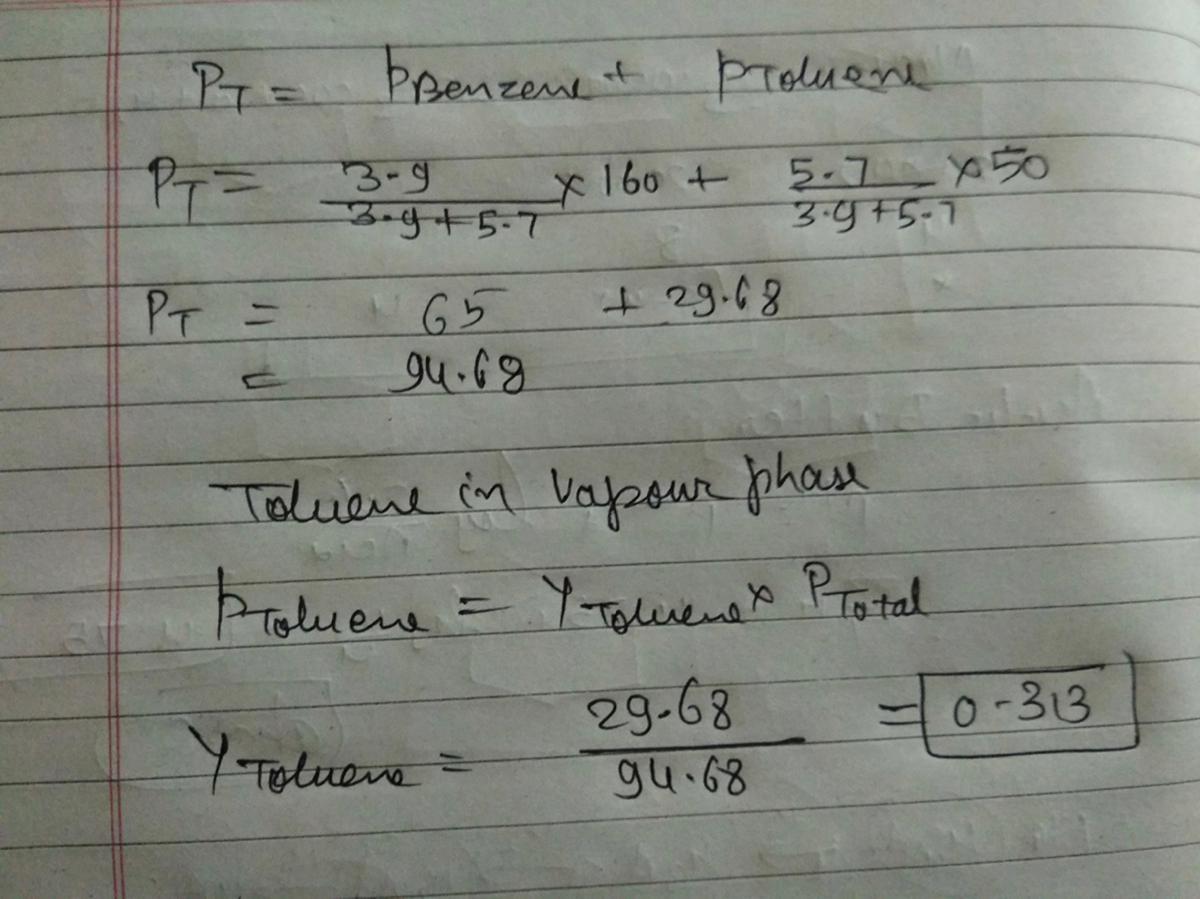 P_T = P_Benzene + P_Toluene
P_T = 3.9/(3.9+5.7) × 160 + 5.7/(3.9+5.7) × 50
P_T = 65 + 29.68
= 94.68
Toluene in vapour phase
P_Toluene = Y_Toluene × P_Total
Y_Toluene = 29.68/94.68 = 0.313